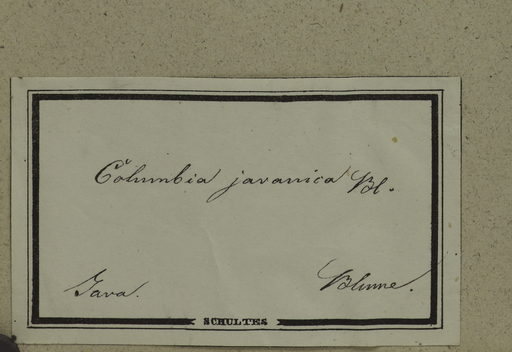 Columbia javanica Bl.
Java. Blume.
SCHULTES